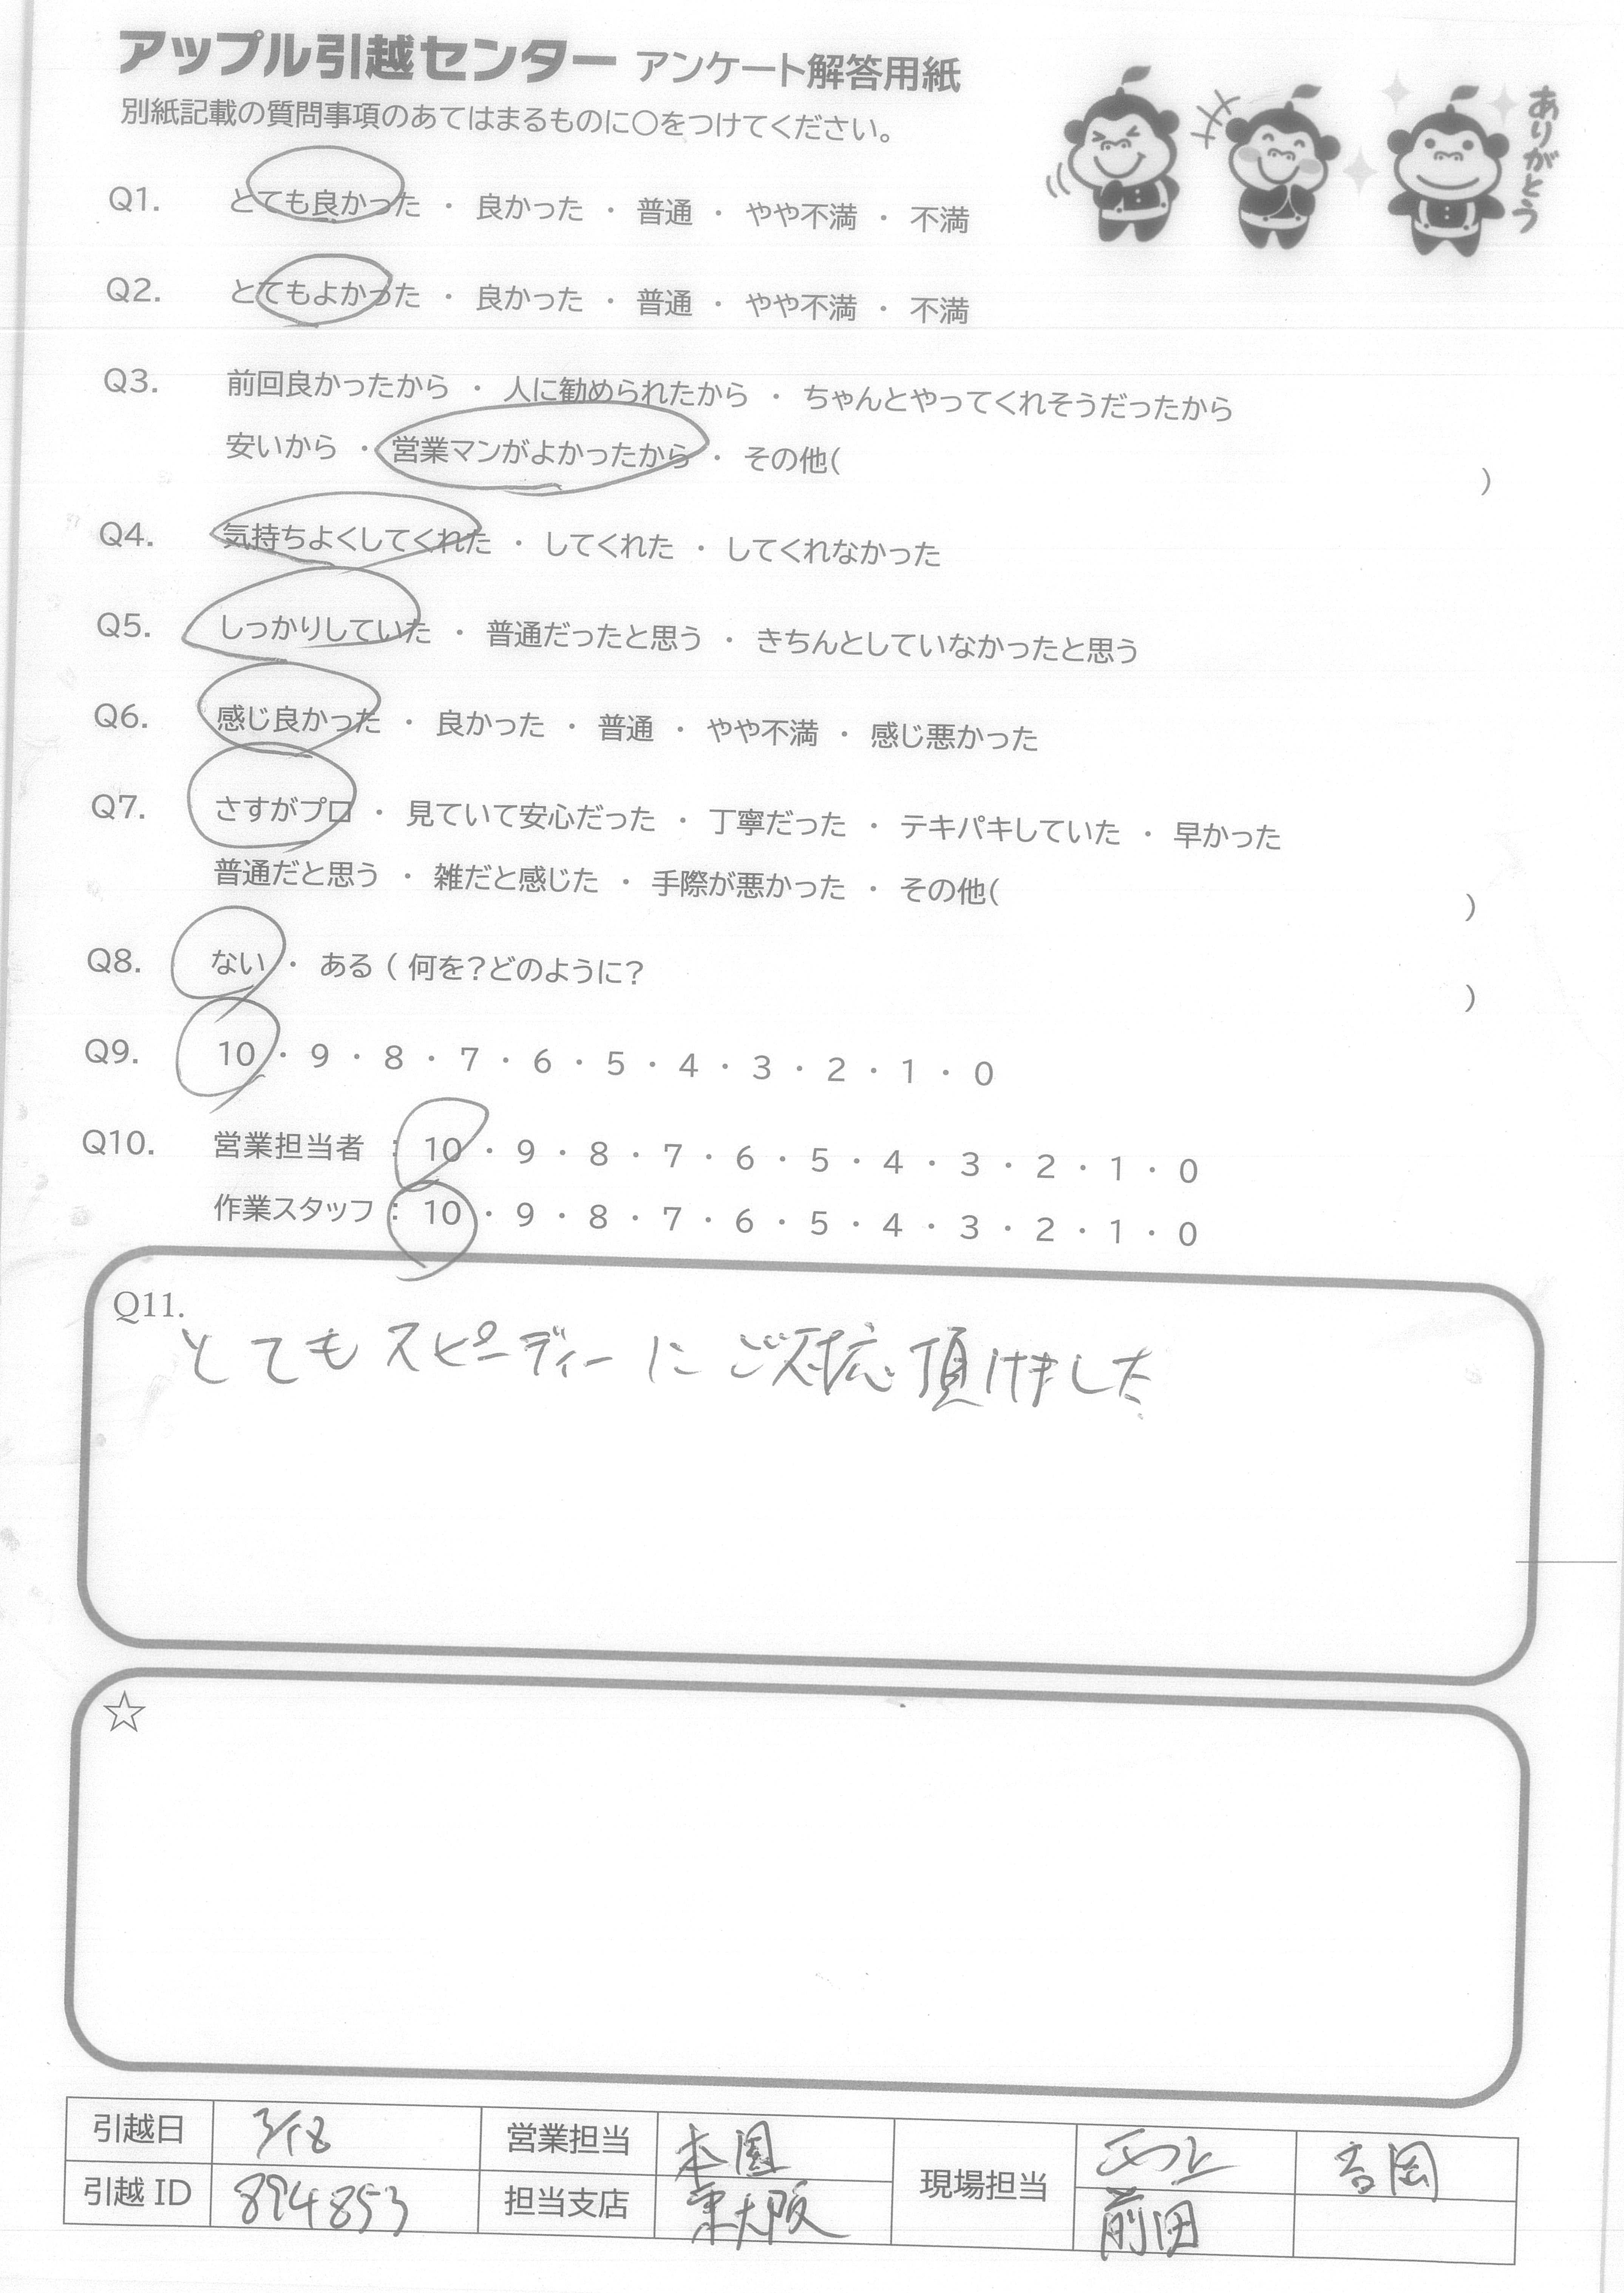 アップル引越センター アンケート解答用紙
別紙記載の質問事項のあてはまるものに○をつけてください。
ありがとう
Q1. とても良かった ・ 良かった ・ 普通 ・ やや不満 ・ 不満
Q2. とてもよかった ・ 良かった ・ 普通 ・ やや不満 ・ 不満
Q3. 前回良かったから ・ 人に勧められたから ・ ちゃんとやってくれそうだったから
安いから ・ 営業マンがよかったから ・ その他( )
Q4. 気持ちよくしてくれた ・ してくれた ・ してくれなかった
Q5. しっかりしていた ・ 普通だったと思う ・ きちんとしていなかったと思う
Q6. 感じ良かった ・ 良かった ・ 普通 ・ やや不満 ・ 感じ悪かった
Q7. さすがプロ ・ 見ていて安心だった ・ 丁寧だった ・ テキパキしていた ・ 早かった
普通だと思う ・ 雑だと感じた ・ 手際が悪かった ・ その他( )
Q8. ない ・ ある ( 何を?どのように? )
Q9. 10 ・ 9 ・ 8 ・ 7 ・ 6 ・ 5 ・ 4 ・ 3 ・ 2 ・ 1 ・ 0
Q10. 営業担当者 : 10 ・ 9 ・ 8 ・ 7 ・ 6 ・ 5 ・ 4 ・ 3 ・ 2 ・ 1 ・ 0
作業スタッフ : 10 ・ 9 ・ 8 ・ 7 ・ 6 ・ 5 ・ 4 ・ 3 ・ 2 ・ 1 ・ 0
Q11.
とてもスピーディーにご対応頂けました
☆
引越日 3/18 営業担当 本園 現場担当 吉岡
引越 ID 894853 担当支店 東大阪 前田